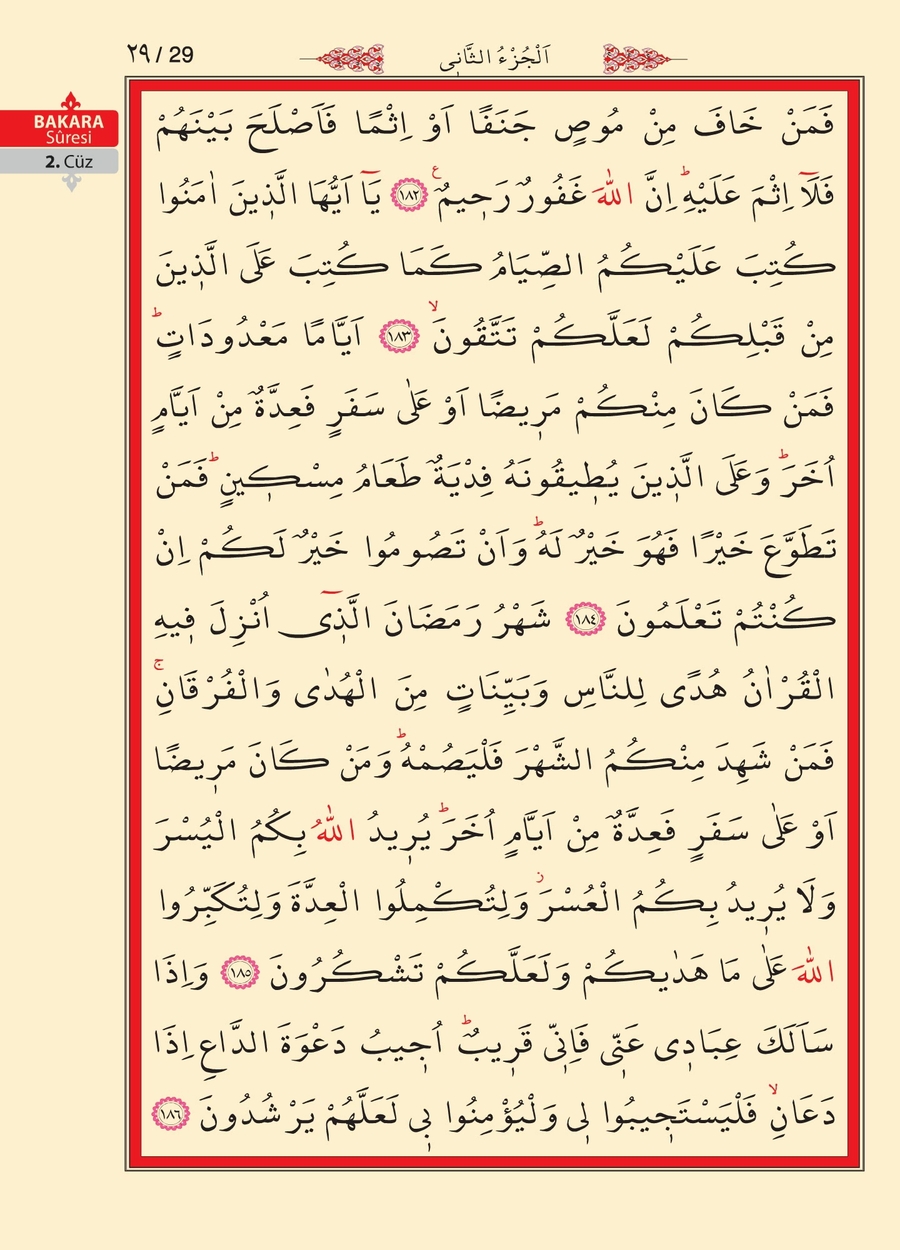 ٢٩ / 29
اَلْجُزْءُ الثَّانٖى
BAKARA
Sûresi
2. Cüz
فَمَنْ خَافَ مِنْ مُوصٍ جَنَفًا اَوْ اِثْمًا فَاَصْلَحَ بَيْنَهُمْ
فَلَآ اِثْمَ عَلَيْهِؕ اِنَّ اللّٰهَ غَفُورٌ رَحٖيمٌࣖ ﴿١٨٢﴾ يَٓا اَيُّهَا الَّذٖينَ اٰمَنُوا
كُتِبَ عَلَيْكُمُ الصِّيَامُ كَمَا كُتِبَ عَلَى الَّذٖينَ
مِنْ قَبْلِكُمْ لَعَلَّكُمْ تَتَّقُونَۙ ﴿١٨٣﴾ اَيَّامًا مَعْدُودَاتٍؕ
فَمَنْ كَانَ مِنْكُمْ مَرٖيضًا اَوْ عَلٰى سَفَرٍ فَعِدَّةٌ مِنْ اَيَّامٍ
اُخَرَؕ وَعَلَى الَّذٖينَ يُطٖيقُونَهُ فِدْيَةٌ طَعَامُ مِسْكٖينٍؕ فَمَنْ
تَطَوَّعَ خَيْرًا فَهُوَ خَيْرٌ لَهُؕ وَاَنْ تَصُومُوا خَيْرٌ لَكُمْ اِنْ
كُنْتُمْ تَعْلَمُونَ ﴿١٨٤﴾ شَهْرُ رَمَضَانَ الَّذٖٓى اُنْزِلَ فٖيهِ
الْقُرْاٰنُ هُدًى لِلنَّاسِ وَبَيِّنَاتٍ مِنَ الْهُدٰى وَالْفُرْقَانِۚ
فَمَنْ شَهِدَ مِنْكُمُ الشَّهْرَ فَلْيَصُمْهُؕ وَمَنْ كَانَ مَرٖيضًا
اَوْ عَلٰى سَفَرٍ فَعِدَّةٌ مِنْ اَيَّامٍ اُخَرَؕ يُرٖيدُ اللّٰهُ بِكُمُ الْيُسْرَ
وَلَا يُرٖيدُ بِكُمُ الْعُسْرَؗ وَلِتُكْمِلُوا الْعِدَّةَ وَلِتُكَبِّرُوا
اللّٰهَ عَلٰى مَا هَدٰيكُمْ وَلَعَلَّكُمْ تَشْكُرُونَ ﴿١٨٥﴾ وَاِذَا
سَاَلَكَ عِبَادٖى عَنّٖى فَاِنّٖى قَرٖيبٌؕ اُجٖيبُ دَعْوَةَ الدَّاعِ اِذَا
دَعَانِۙ فَلْيَسْتَجٖيبُوا لٖى وَلْيُؤْمِنُوا بٖى لَعَلَّهُمْ يَرْشُدُونَ ﴿١٨٦﴾